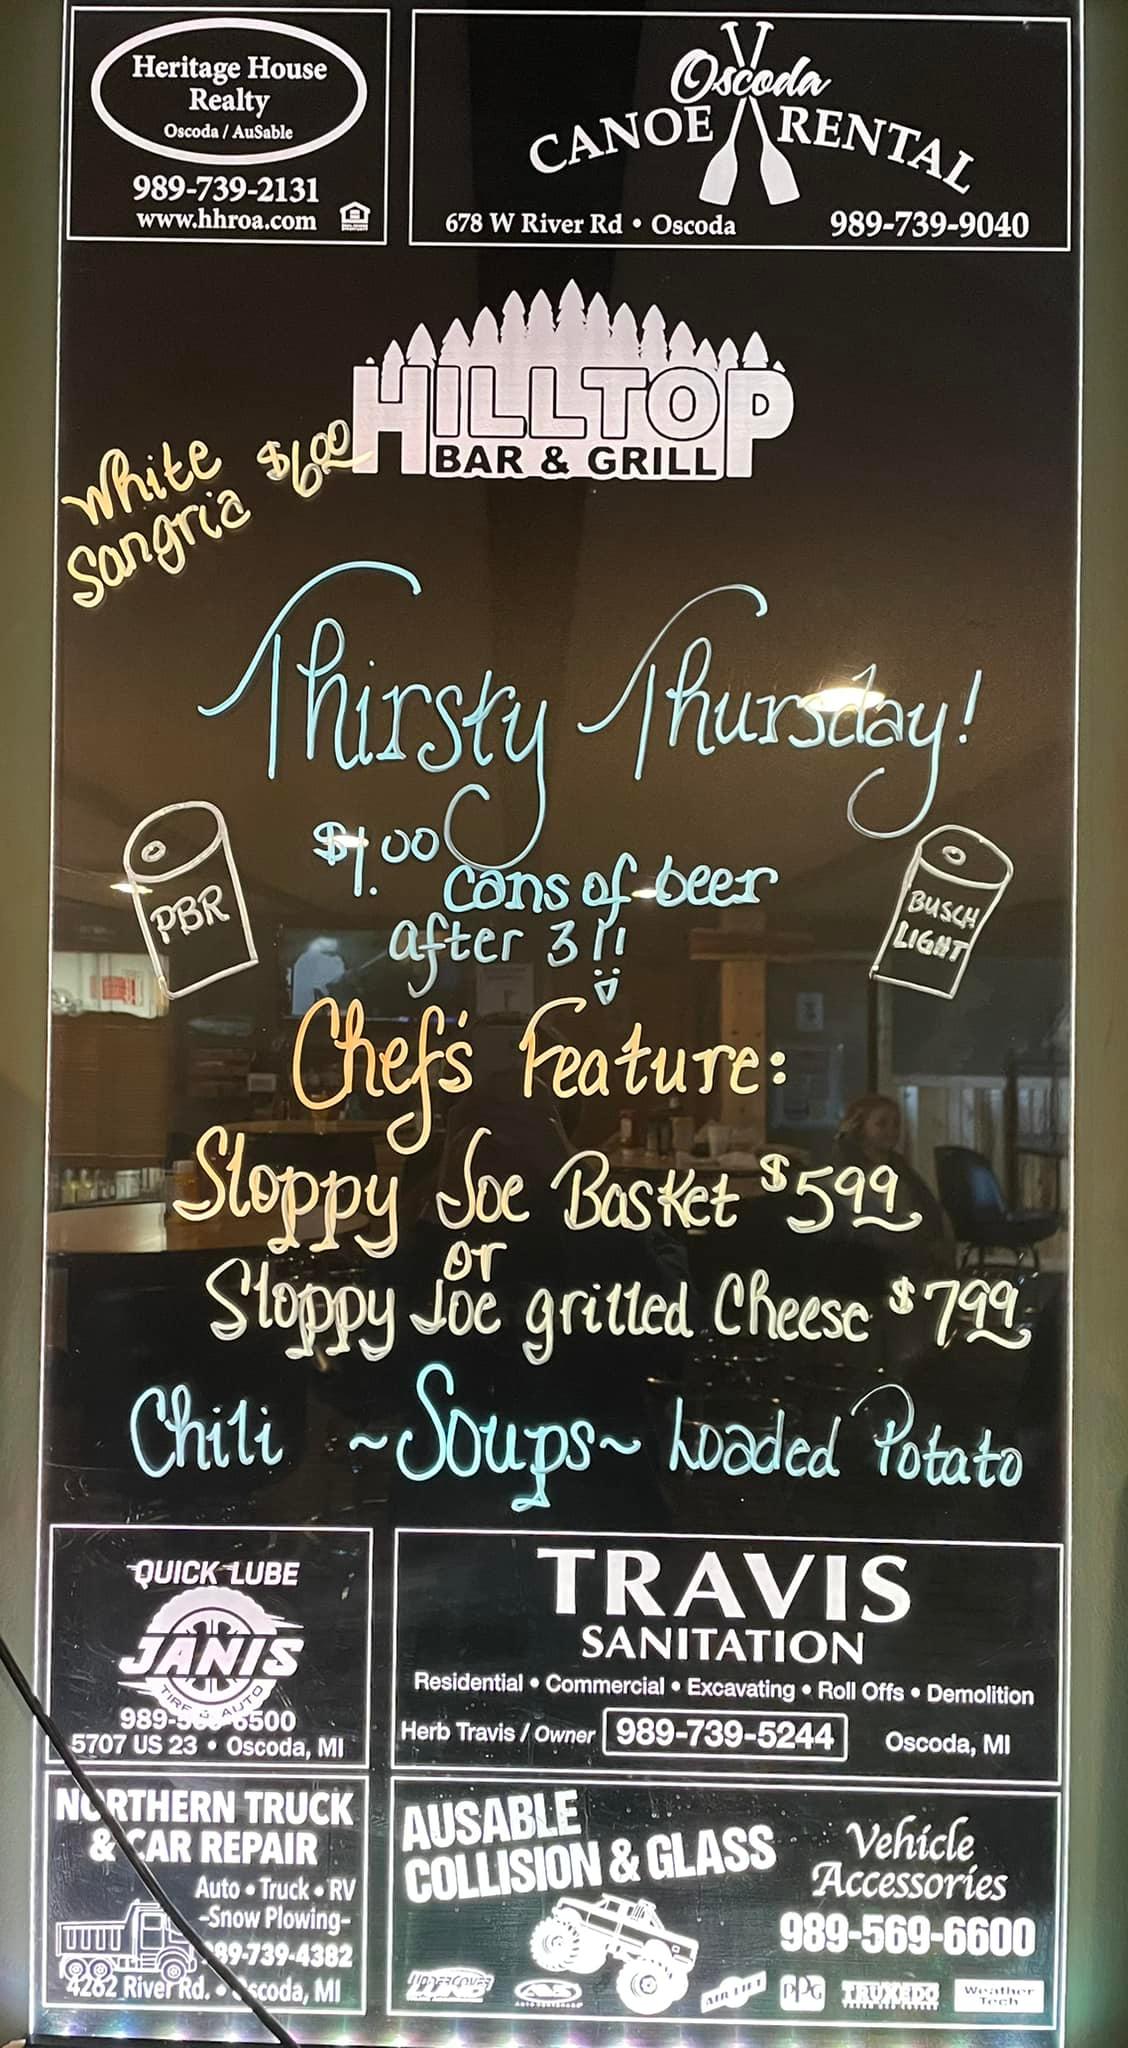 Heritage House
Realty
Oscoda / AuSable
989-739-2131
www.hhroa.com
Oscoda
CANOE RENTAL
678 W River Rd • Oscoda 989-739-9040
HILLTOP
BAR & GRILL
White
Sangria $6.00
Thirsty Thursday!
$1.00 cans of beer
after 3!!
PBR
BUSCH
LIGHT
Chef's Feature:
Sloppy Joe Basket $5.99
or
Sloppy Joe grilled Cheese $7.99
Chili ~Soups~ Loaded Potato
QUICK LUBE
JANIS
TIRE & AUTO
5707 US 23 • Oscoda, MI
TRAVIS
SANITATION
Residential • Commercial • Excavating • Roll Offs • Demolition
Herb Travis / Owner 989-739-5244 Oscoda, MI
NORTHERN TRUCK
& CAR REPAIR
Auto • Truck • RV
-Snow Plowing-
89-739-4382
4262 River Rd. • Oscoda, MI
AUSABLE
COLLISION & GLASS
Vehicle
Accessories
989-569-6600
UNDERCOVER
AIR LIFT
PPG
TRUXEDO
Weather
Tech